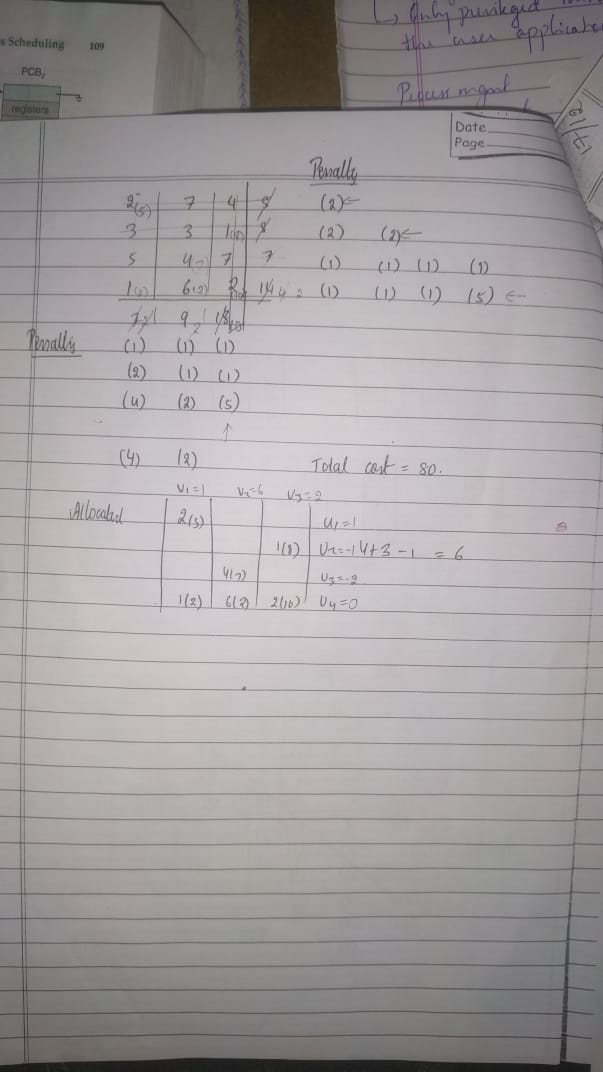 s Scheduling 109
PCB₂
registers
↳ Only privileged
the user applicatio
Process mgmt
17/12
Date
Page
Penalty
2(5) 7 4 5 (2)←
3 3 1(8) 8 (2) (2)←
5 4(7) 7 7 (1) (1) (1) (1)
1(2) 6(2) 14 4 2 (1) (1) (1) (5) ←
9 2
Penalty (1) (1) (1)
(2) (1) (1)
(4) (2) (5)
↑
(4) (2) Total cost = 80.
V₁=1 V₂=6 V₃=2
Allocated 2(5) U₁=1
1(8) U₂=-1 4+3-1 = 6
4(7) U₃=-2
1(2) 6(2) 2(10) U₄=0